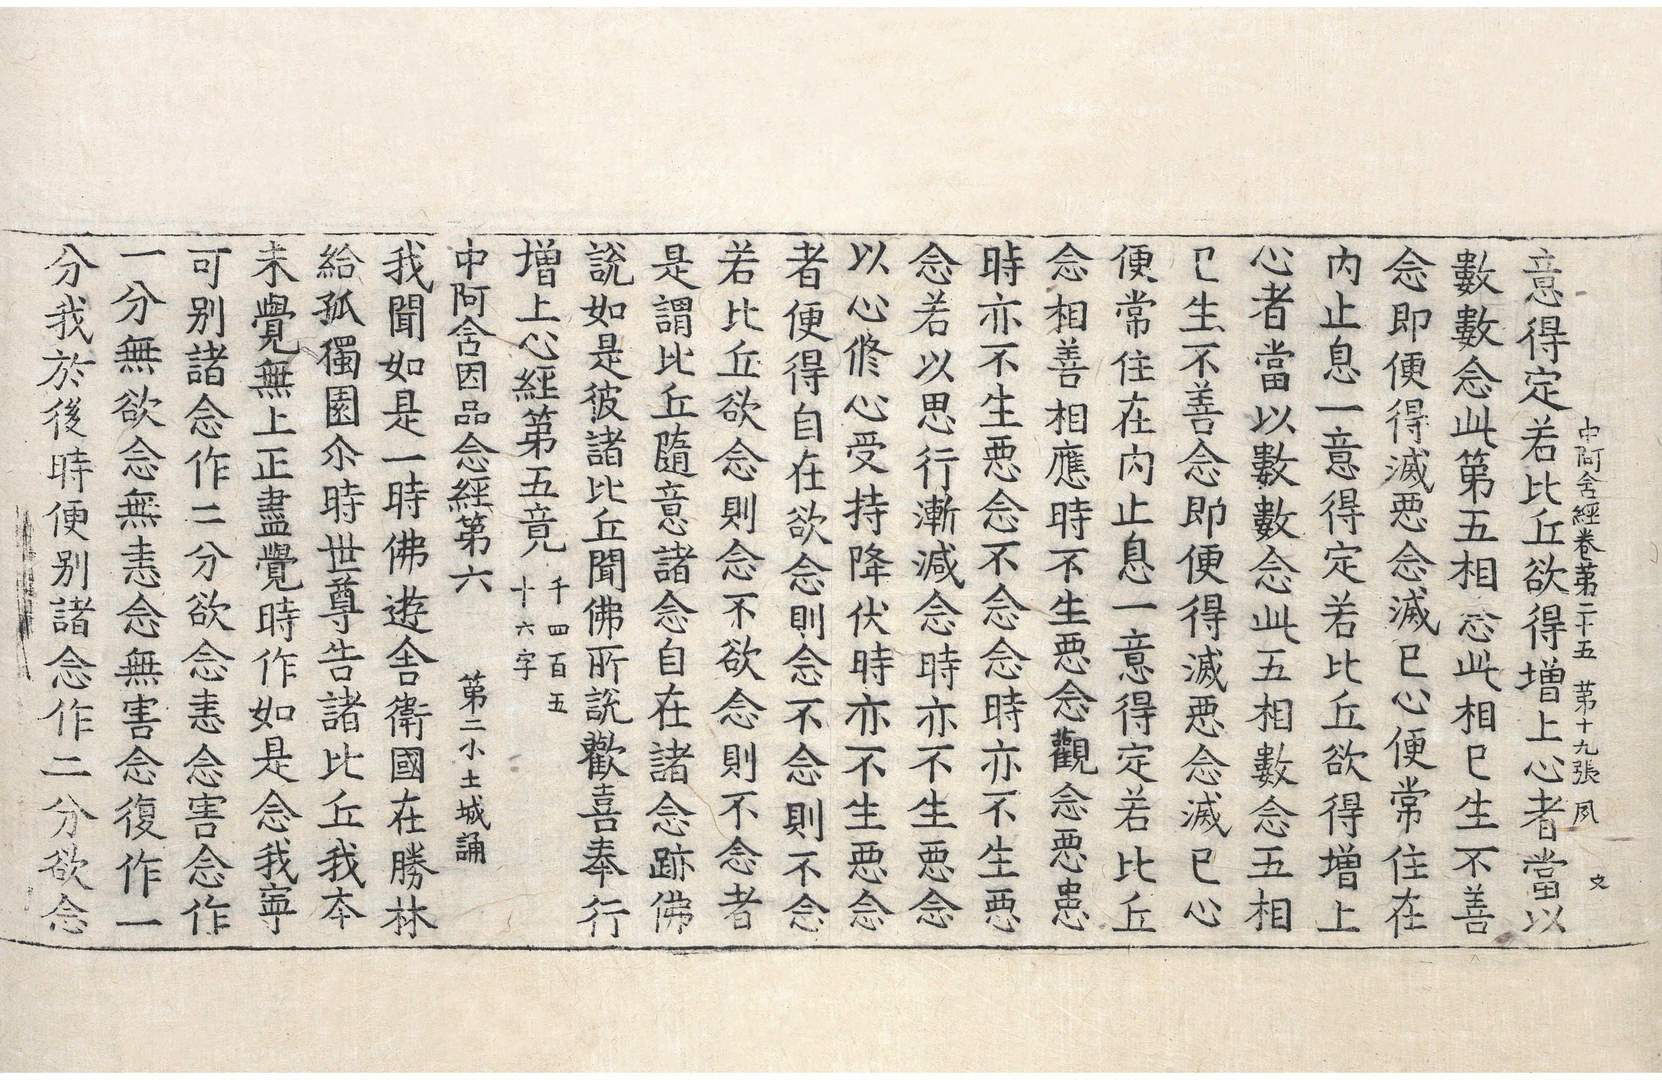 中阿含經卷第二十五　第十九張　夙
文
意得定若比丘欲得增上心者當以
數數念此第五相念此相已生不善
念即便得滅惡念滅已心便常住在
内止息一意得定若比丘欲得增上
心者當以數數念此五相數念五相
已生不善念即便得滅惡念滅已心
便常住在内止息一意得定若比丘
念相善相應時不生惡念觀念惡患
時亦不生惡念不念念時亦不生惡
念若以思行漸減念時亦不生惡念
以心修心受持降伏時亦不生惡念
者便得自在欲念則念不念則不念
若比丘欲念則念不欲念則不念者
是謂比丘隨意諸念自在諸念跡佛
說如是彼諸比丘聞佛所說歡喜奉行
增上心經第五竟　千四百五
十六字
中阿含因品念經第六　第二小土城誦
我聞如是一時佛遊舍衛國在勝林
給孤獨園尒時世尊告諸比丘我本
未覺無上正盡覺時作如是念我寧
可別諸念作二分欲念恚念害念作
一分無欲念無恚念無害念復作一
分我於後時便別諸念作二分欲念